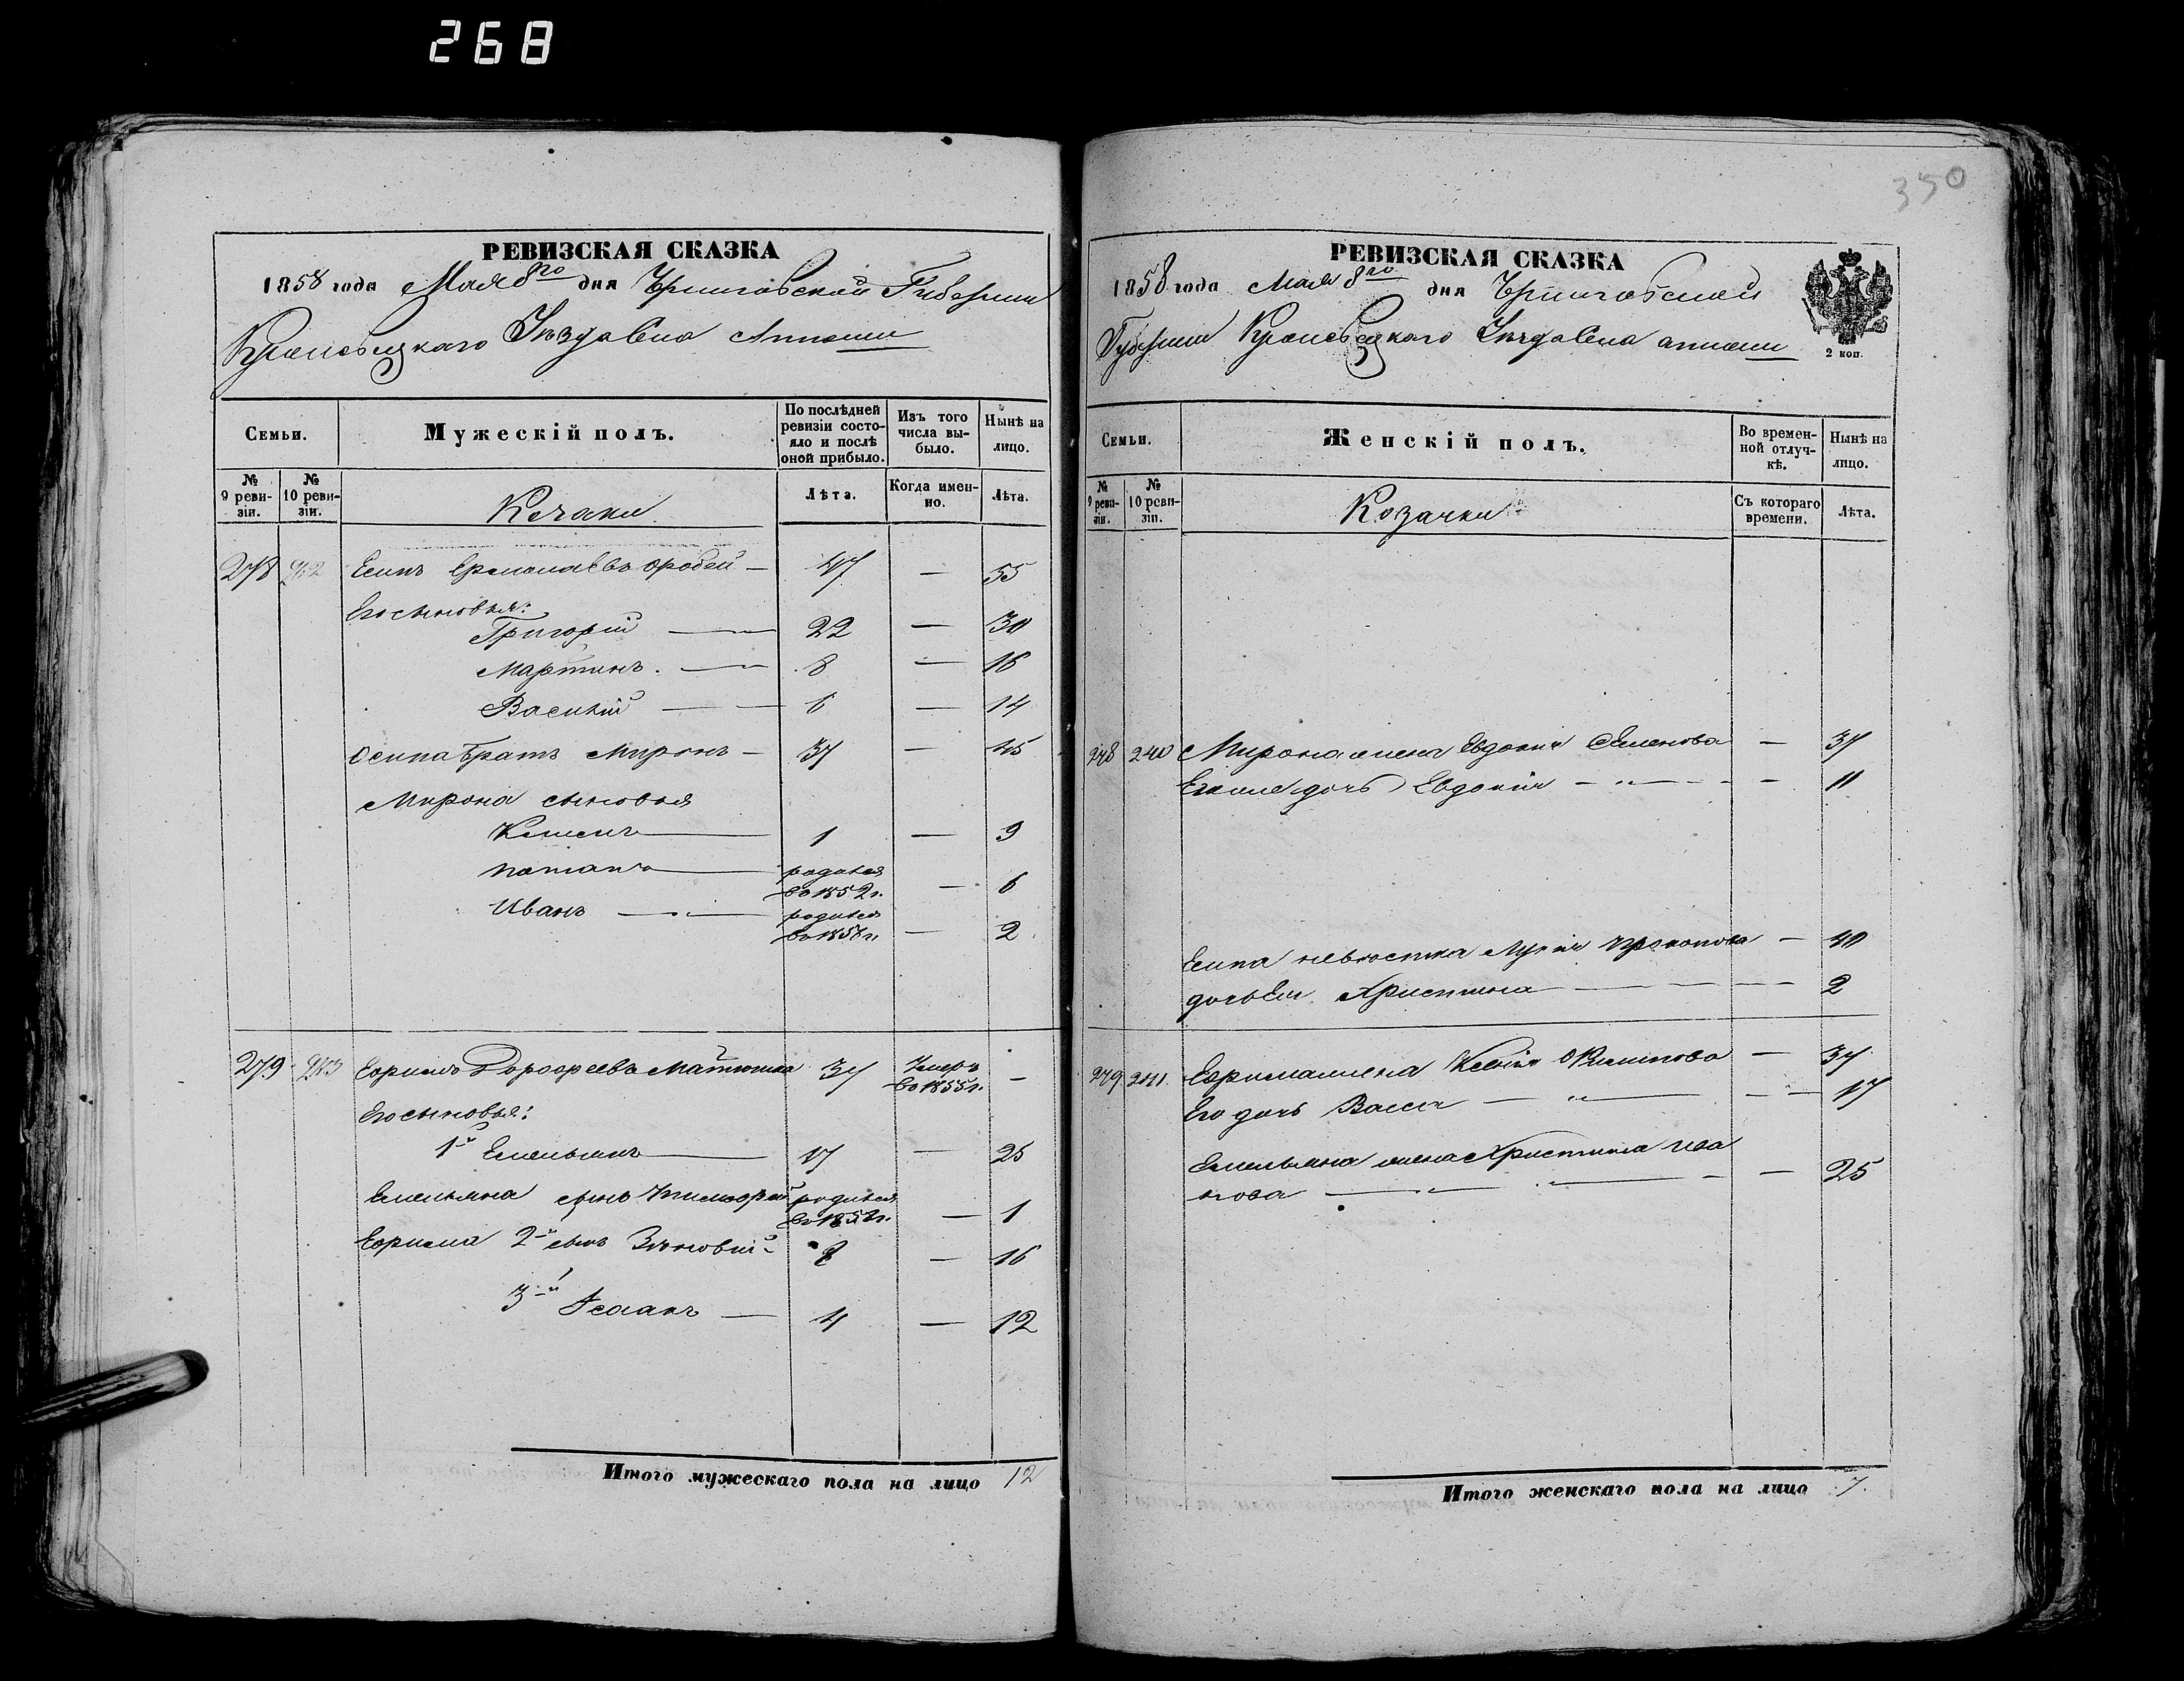 268
350
РЕВИЗСКАЯ СКАЗКА
1858 года Мая 8го дня Черниговской Губернии
Кролевецкаго Уезда Села
Семьи.
Мужескій полъ.
По послѣдней ревизіи состояло и послѣ оной прибыло.
Изъ того числа выбыло.
Нынѣ на лицо.
№ 9 ревизіи.
№ 10 ревизіи.
Козаки
Лѣта.
Когда именно.
Лѣта.
278 Есипъ 47 — 55
Его сыновья:
Григорій — 22 — 30
Мартинъ. — 8 — 16
Василій — 6 — 14
Осипа братъ Миронъ — 37 — 45
Мирона сыновья
1 — 9
Потапъ родился во 1852 г. — 6
Иванъ — родился во 1856 г. — 2
279 Ефримъ Дорофеевъ Матюшка 37 Умеръ во 1855 г. —
Его сыновья:
1й Емельянъ 17 — 25
Емельяна сынъ Тимофей родился — 1
Ефрима 2й сынъ Зѣновій 8 — 16
3й Исаакъ — 4 — 12
Итого мужескаго пола на лицо 12
РЕВИЗСКАЯ СКАЗКА
1858 года Мая 8го дня Черниговской
Губернии Кролевецкаго Уезда Села
2 коп.
Семьи.
Женскій полъ.
Во временной отлучкѣ.
Нынѣ на лицо.
№ 9 ревизіи.
№ 10 ревизіи.
Козачки
Съ котораго времени.
Лѣта.
278 240 Мирона жена Евдокия Семенова — 37
дочь Евдокія — 11
Есипа невѣстка Прокопова — 40
дочь Ея Христина — 2
279 241 Ефрима жена Ксенія Филипова — 37
Его дочь Васса — 17
Емельяна жена Христина Ива
нова — 25
Итого женскаго пола на лицо 7.